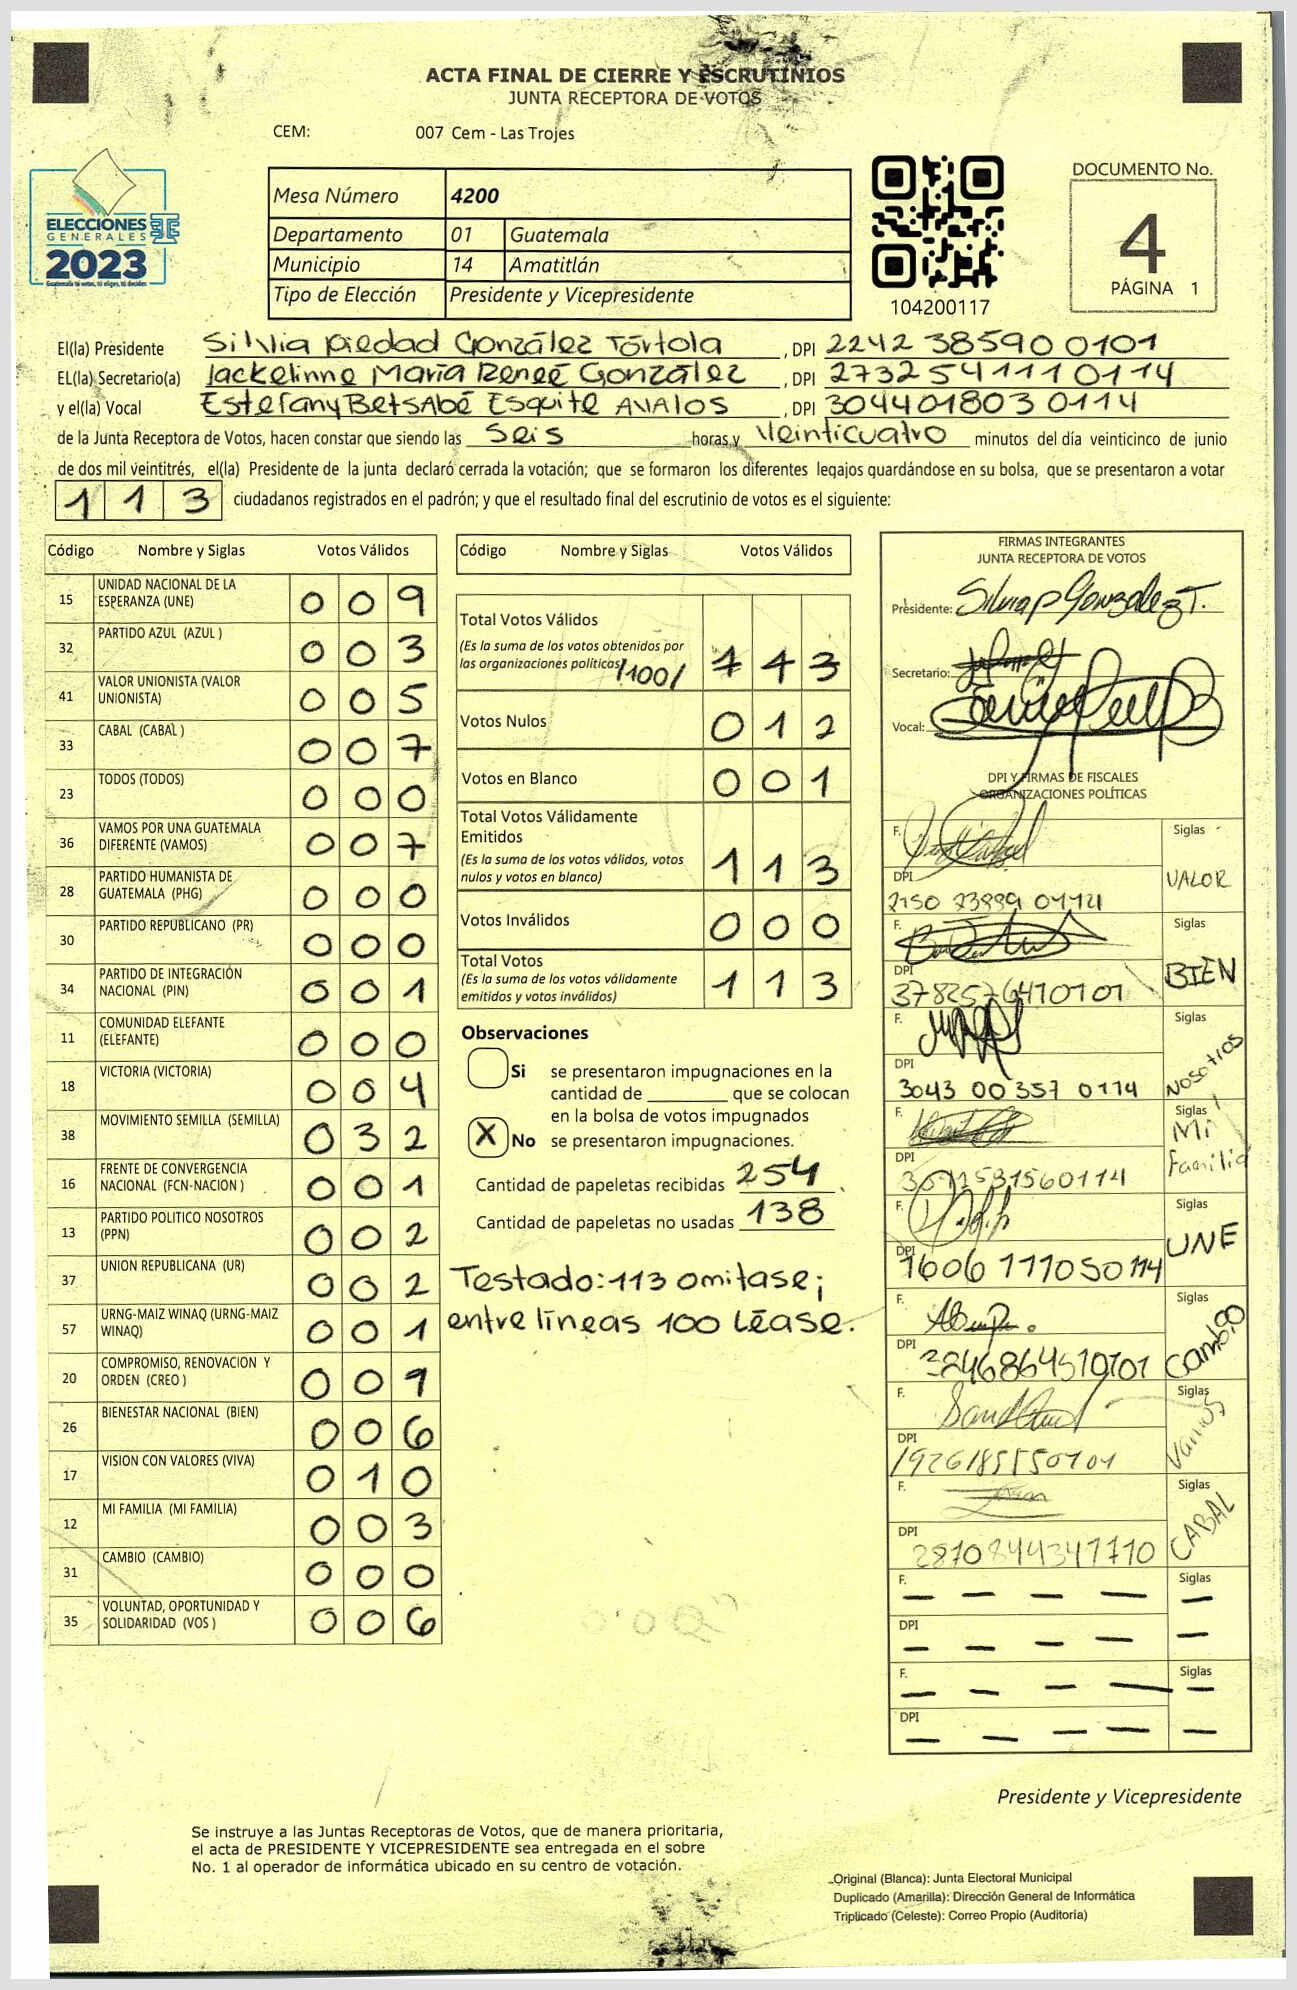 ACTA FINAL DE CIERRE Y ESCRUTINIOS
JUNTA RECEPTORA DE VOTOS
CEM: 007 Cem - Las Trojes
ELECCIONES
GENERALES
2023
Guatemala tú votas, tú eliges, tú decides
Mesa Número 4200
Departamento 01 Guatemala
Municipio 14 Amatitlán
Tipo de Elección Presidente y Vicepresidente
104200117
DOCUMENTO No.
4
PÁGINA 1
El(la) Presidente Silvia Piedad González Tórtola, DPI 2242 38590 0101
EL(la) Secretario(a) Jackelinne María Reneé González, DPI 2732 54111 0114
y el(la) Vocal Estefany Betsabé Esquite Avalos, DPI 304401803 0114
de la Junta Receptora de Votos, hacen constar que siendo las Seis horas y Veinticuatro minutos del día veinticinco de junio
de dos mil veintitrés, el(la) Presidente de la junta declaró cerrada la votación; que se formaron los diferentes legajos guardándose en su bolsa, que se presentaron a votar
113 ciudadanos registrados en el padrón; y que el resultado final del escrutinio de votos es el siguiente:
Código Nombre y Siglas Votos Válidos
15 UNIDAD NACIONAL DE LA ESPERANZA (UNE) 009
32 PARTIDO AZUL (AZUL ) 003
41 VALOR UNIONISTA (VALOR UNIONISTA) 005
33 CABAL (CABAL ) 007
23 TODOS (TODOS) 000
36 VAMOS POR UNA GUATEMALA DIFERENTE (VAMOS) 007
28 PARTIDO HUMANISTA DE GUATEMALA (PHG) 000
30 PARTIDO REPUBLICANO (PR) 000
34 PARTIDO DE INTEGRACIÓN NACIONAL (PIN) 001
11 COMUNIDAD ELEFANTE (ELEFANTE) 000
18 VICTORIA (VICTORIA) 004
38 MOVIMIENTO SEMILLA (SEMILLA) 032
16 FRENTE DE CONVERGENCIA NACIONAL (FCN-NACION ) 001
13 PARTIDO POLITICO NOSOTROS (PPN) 002
37 UNION REPUBLICANA (UR) 002
57 URNG-MAIZ WINAQ (URNG-MAIZ WINAQ) 001
20 COMPROMISO, RENOVACION Y ORDEN (CREO )
26 BIENESTAR NACIONAL (BIEN) 006
17 VISION CON VALORES (VIVA) 010
12 MI FAMILIA (MI FAMILIA) 003
31 CAMBIO (CAMBIO) 000
35 VOLUNTAD, OPORTUNIDAD Y SOLIDARIDAD (VOS ) 006
Código Nombre y Siglas Votos Válidos
Total Votos Válidos
(Es la suma de los votos obtenidos por
las organizaciones políticas) /100/
Votos Nulos 012
Votos en Blanco 001
Total Votos Válidamente
Emitidos
(Es la suma de los votos válidos, votos
nulos y votos en blanco) 113
Votos Inválidos 000
Total Votos
(Es la suma de los votos válidamente
emitidos y votos inválidos) 113
Observaciones
Si se presentaron impugnaciones en la
cantidad de ________ que se colocan
en la bolsa de votos impugnados
X No se presentaron impugnaciones.
Cantidad de papeletas recibidas 254
Cantidad de papeletas no usadas 138
Testado: 113 omitase;
entre líneas 100 Léase.
FIRMAS INTEGRANTES
JUNTA RECEPTORA DE VOTOS
Presidente: Silvia P González T.
Secretario:
Vocal:
DPI Y FIRMAS DE FISCALES
ORGANIZACIONES POLÍTICAS
F. Siglas
DPI VALOR
F. Siglas
DPI BIEN
F. Siglas
DPI 3043 00 357 0114 Nosotros
F. Siglas
DPI Mi Familia
F. Siglas
DPI 1606 111050114 UNE
F. Siglas
DPI Cambio
F. Siglas
DPI Vamos
F. Siglas
DPI CABAL
F. Siglas
DPI
F. Siglas
DPI
Presidente y Vicepresidente
Se instruye a las Juntas Receptoras de Votos, que de manera prioritaria,
el acta de PRESIDENTE Y VICEPRESIDENTE sea entregada en el sobre
No. 1 al operador de informática ubicado en su centro de votación.
Original (Blanca): Junta Electoral Municipal
Duplicado (Amarilla): Dirección General de Informática
Triplicado (Celeste): Correo Propio (Auditoría)